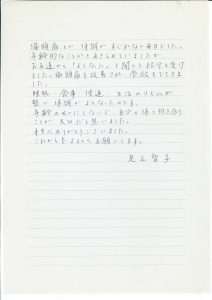 偏頭痛とか体調がすぐれない毎日でした。
年齢的なことだとあきらめていましたが、
お友達から「よくなった」と聞いて
ました。偏頭痛も改善され、食欲もでてきま
した。
睡眠・食事・快適 生活のリズムが
整い体調がよくなったのです。
年齢のせいにしないで、自分の体と向き合う
ことが大切だと思いました。
本当にありがとうございました。
これからもよろしくお願いします。
足立智子